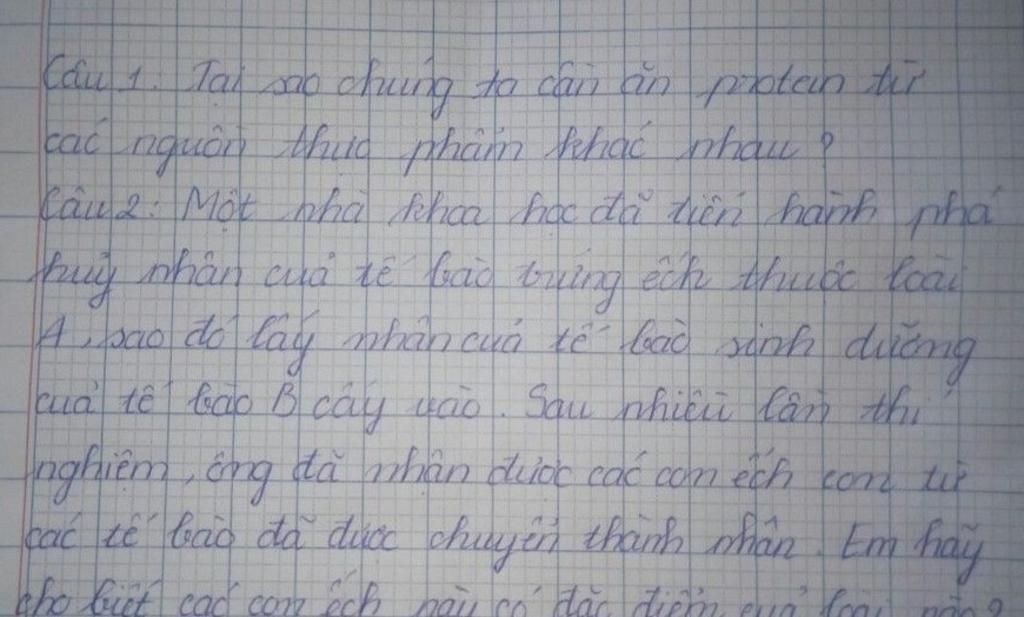 Câu 1: Tại sao chúng ta cần ăn protein từ
các nguồn thực phẩm khác nhau?
Câu 2: Một nhà khoa học đã tiến hành phá
huỷ nhân của tế bào trứng ếch thuộc loài
A, sao đó lấy nhân của tế bào sinh dưỡng
của tế bào B cấy vào. Sau nhiều lần thí
nghiệm, ông đã nhận được các con ếch con từ
các tế bào đã được chuyển thành nhân. Em hãy
cho biết các con ếch này có đặc điểm của loài nào?